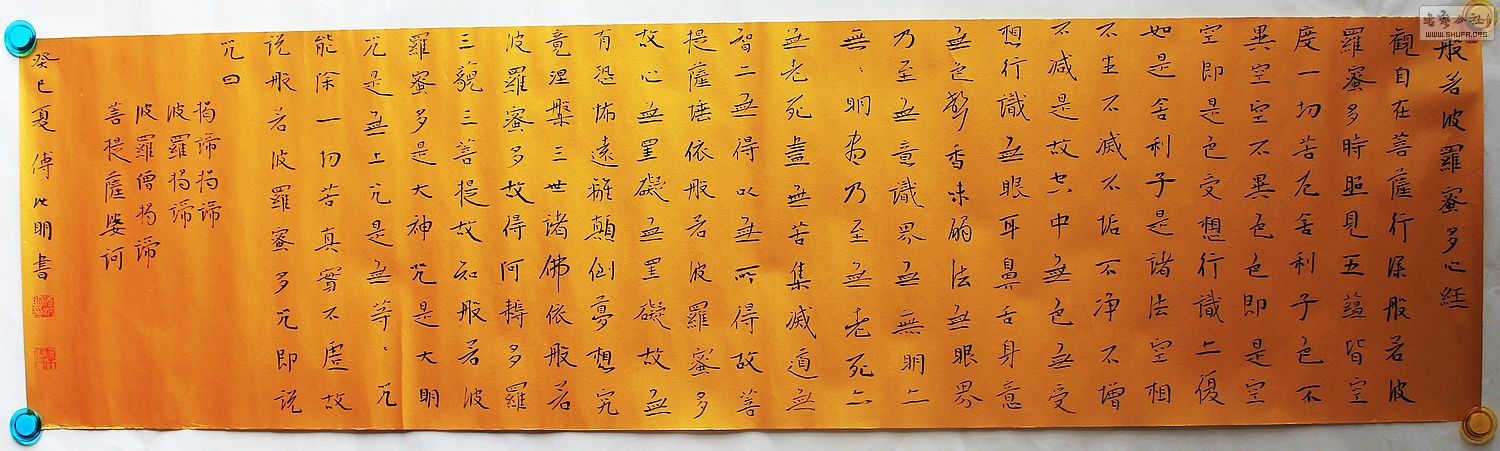 般若波羅蜜多心經
觀自在菩薩行深般若波
羅蜜多時照見五蘊皆空
度一切苦厄舍利子色不
異空空不異色色即是空
空即是色受想行識亦復
如是舍利子是諸法空相
不生不滅不垢不淨不增
不減是故空中無色無受
想行識無眼耳鼻舌身意
無色聲香味觸法無眼界
乃至無意識界無無明亦
無、明盡乃至無老死亦
無老死盡無苦集滅道無
智亦無得以無所得故菩
提薩埵依般若波羅蜜多
故心無罣礙無罣礙故無
有恐怖遠離顛倒夢想究
竟涅槃三世諸佛依般若
波羅蜜多故得阿耨多羅
三藐三菩提故知般若波
羅蜜多是大神咒是大明
咒是無上咒是無等、咒
能除一切苦真實不虛故
說般若波羅蜜多咒即說
咒曰
揭諦揭諦
波羅揭諦
波羅僧揭諦
菩提薩婆訶
癸巳夏 傅明書
WWW.SHUFA.ORG